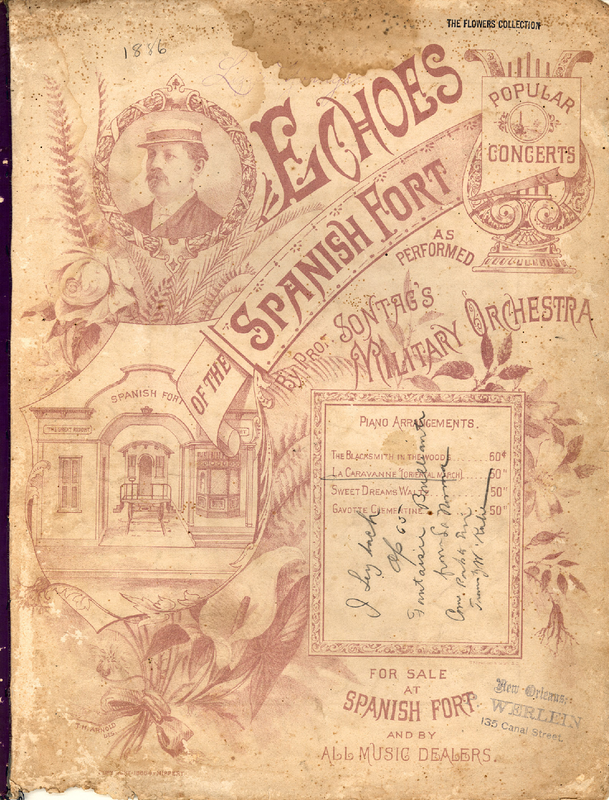 THE FLOWERS COLLECTION
1886
ECHOES
OF THE SPANISH FORT
POPULAR
CONCERTS
AS
PERFORMED
BY PROF. SONTAG'S
MILITARY ORCHESTRA
SPANISH FORT
PIANO ARRANGEMENTS.
THE BLACKSMITH IN THE WOODS 60¢
LA CARAVANNE (ORIENTAL MARCH) 50"
SWEET DREAMS WA 50"
GAVOTTE CLEMENTINE 50"
J Leybach
Op
Fantaisie Brillante
FOR SALE
AT
SPANISH FORT
AND BY
ALL MUSIC DEALERS.
New-Orleans:
WERLEIN
135 Canal Street.
T. H. ARNOLD
DES.